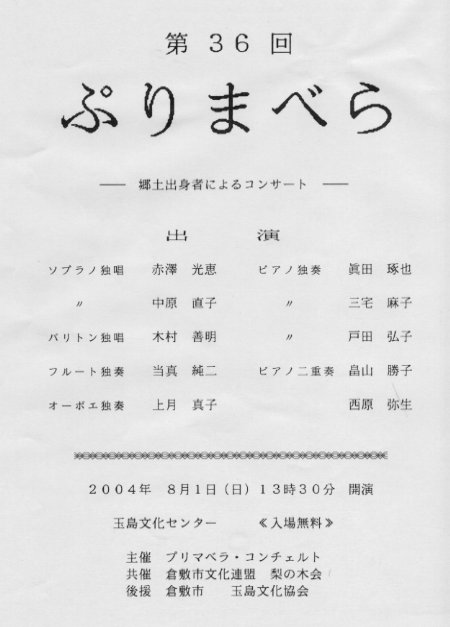 第 36 回
ぷりまべら
―― 郷土出身者によるコンサート ――
出　演
ソプラノ独唱　赤澤　光恵　ピアノ独奏　眞田　琢也
〃　中原　直子　〃　三宅　麻子
バリトン独唱　木村　善明　〃　戸田　弘子
フルート独奏　当真　純二　ピアノ二重奏　畠山　勝子
オーボエ独奏　上月　真子　西原　弥生
2004年　8月1日(日)13時30分　開演
玉島文化センター　≪入場無料≫
主催　プリマベラ・コンチェルト
共催　倉敷市文化連盟　梨の木会
後援　倉敷市　玉島文化協会